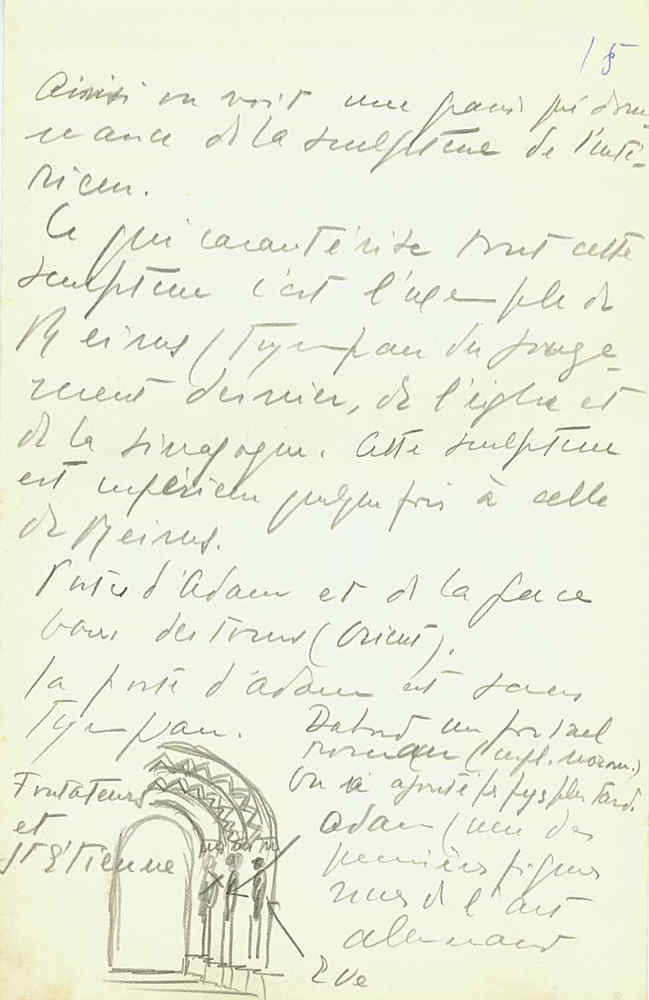 15
Ainsi on voit une grand prédomi-
nance de la sculpture de l'inté-
rieur.
Ce qui caractérise tout cette
sculpture c'est l'exemple de
Reims (Tympan du juge-
ment dernier, de l'église et
de la sinagogue. Cette sculpture
est inférieur quelque fois à celle
de Reims.
Porte d'Adam et de la
des tours (Orient).
La porte d'adam est sans
Tympan.
Dabord un portail
roman (infl. norm.)
On a ajouté les figs plus tard.
Adam (une des
premières figures
nues de l'art
allemand
Fondateurs
et
St Etienne
Eve